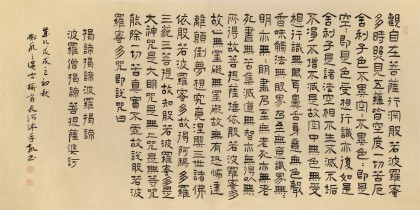 觀自在菩薩行深般若波羅蜜
多時照見五蘊皆空度一切苦厄
舍利子色不異空空不異色色即是
空空即是色受想行識亦復如是
舍利子是諸法空相不生不滅不垢
不淨不增不減是故空中無色無受
想行識無眼耳鼻舌身意無色聲
香味觸法無眼界乃至無意識界無無
明亦無無明盡乃至無老死亦無老
死盡無苦集滅道無智亦無得以無
所得故菩提薩埵依般若波羅蜜多
故心無罣礙無罣礙故無有恐怖遠
離顛倒夢想究竟涅槃三世諸佛
依般若波羅蜜多故得阿耨多羅
三藐三菩提故知般若波羅蜜多是
大神咒是大明咒是無上咒是無等等咒
能除一切苦真實不虛故說般若波
羅蜜多咒即說咒曰
揭諦揭諦波羅揭諦
波羅僧揭諦菩提薩婆訶